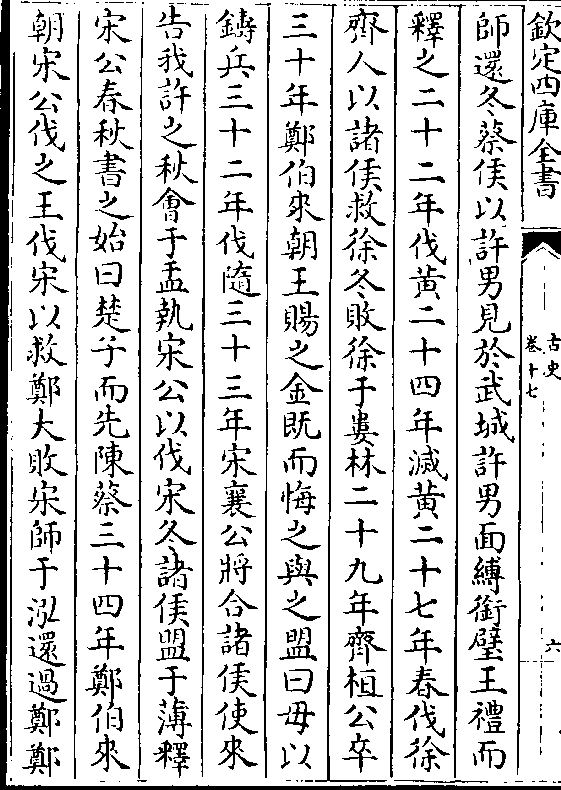 欽定四庫全書
古史
卷十七
六
師還冬蔡侯以許男見於武城許男面縛銜璧王禮而
釋之二十二年伐黄二十四年滅黄二十七年春伐徐
齊人以諸侯救徐冬敗徐于婁林二十九年齊桓公卒
三十年鄭伯來朝王賜之金既而悔之與之盟曰毋以
鑄兵三十二年伐隨三十三年宋襄公將合諸侯使來
告我許之秋會于盂執宋公以伐宋冬諸侯盟于薄釋
宋公春秋書之始曰楚子而先陳蔡三十四年鄭伯來
朝宋公伐之王伐宋以救鄭大敗宋師于泓還過鄭鄭